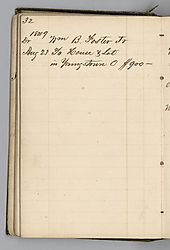 32
1859
Dr Wm B. Foster Jr
Aug 23 To House & Lot
in Youngstown O $900—